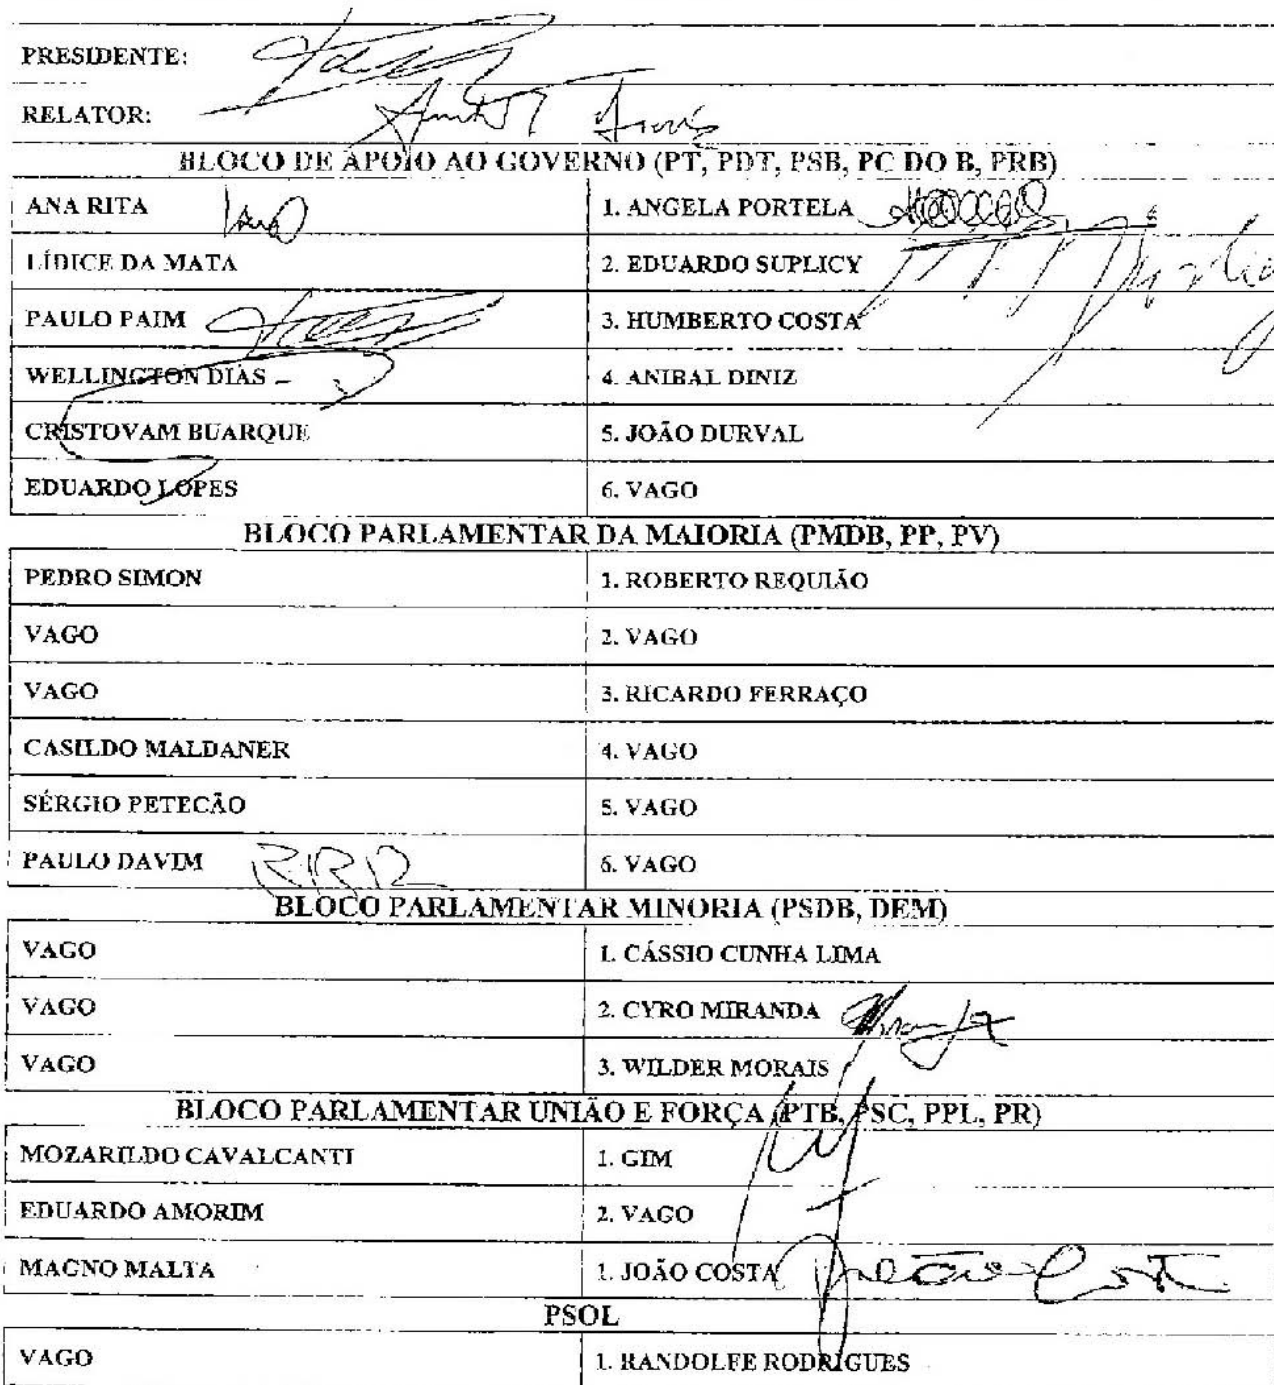 PRESIDENTE:
RELATOR:
BLOCO DE APOIO AO GOVERNO (PT, PDT, PSB, PC DO B, PRB)
ANA RITA 1. ANGELA PORTELA
LÍDICE DA MATA 2. EDUARDO SUPLICY
PAULO PAIM 3. HUMBERTO COSTA
WELLINGTON DIAS 4. ANIBAL DINIZ
CRISTOVAM BUARQUE 5. JOÃO DURVAL
EDUARDO LOPES 6. VAGO
BLOCO PARLAMENTAR DA MAIORIA (PMDB, PP, PV)
PEDRO SIMON 1. ROBERTO REQUIÃO
VAGO 2. VAGO
VAGO 3. RICARDO FERRAÇO
CASILDO MALDANER 4. VAGO
SÉRGIO PETECÃO 5. VAGO
PAULO DAVIM 6. VAGO
BLOCO PARLAMENTAR MINORIA (PSDB, DEM)
VAGO 1. CÁSSIO CUNHA LIMA
VAGO 2. CYRO MIRANDA
VAGO 3. WILDER MORAIS
BLOCO PARLAMENTAR UNIÃO E FORÇA (PTB, PSC, PPL, PR)
MOZARILDO CAVALCANTI 1. GIM
EDUARDO AMORIM 2. VAGO
MAGNO MALTA 1. JOÃO COSTA João Costa
PSOL
VAGO 1. RANDOLFE RODRIGUES